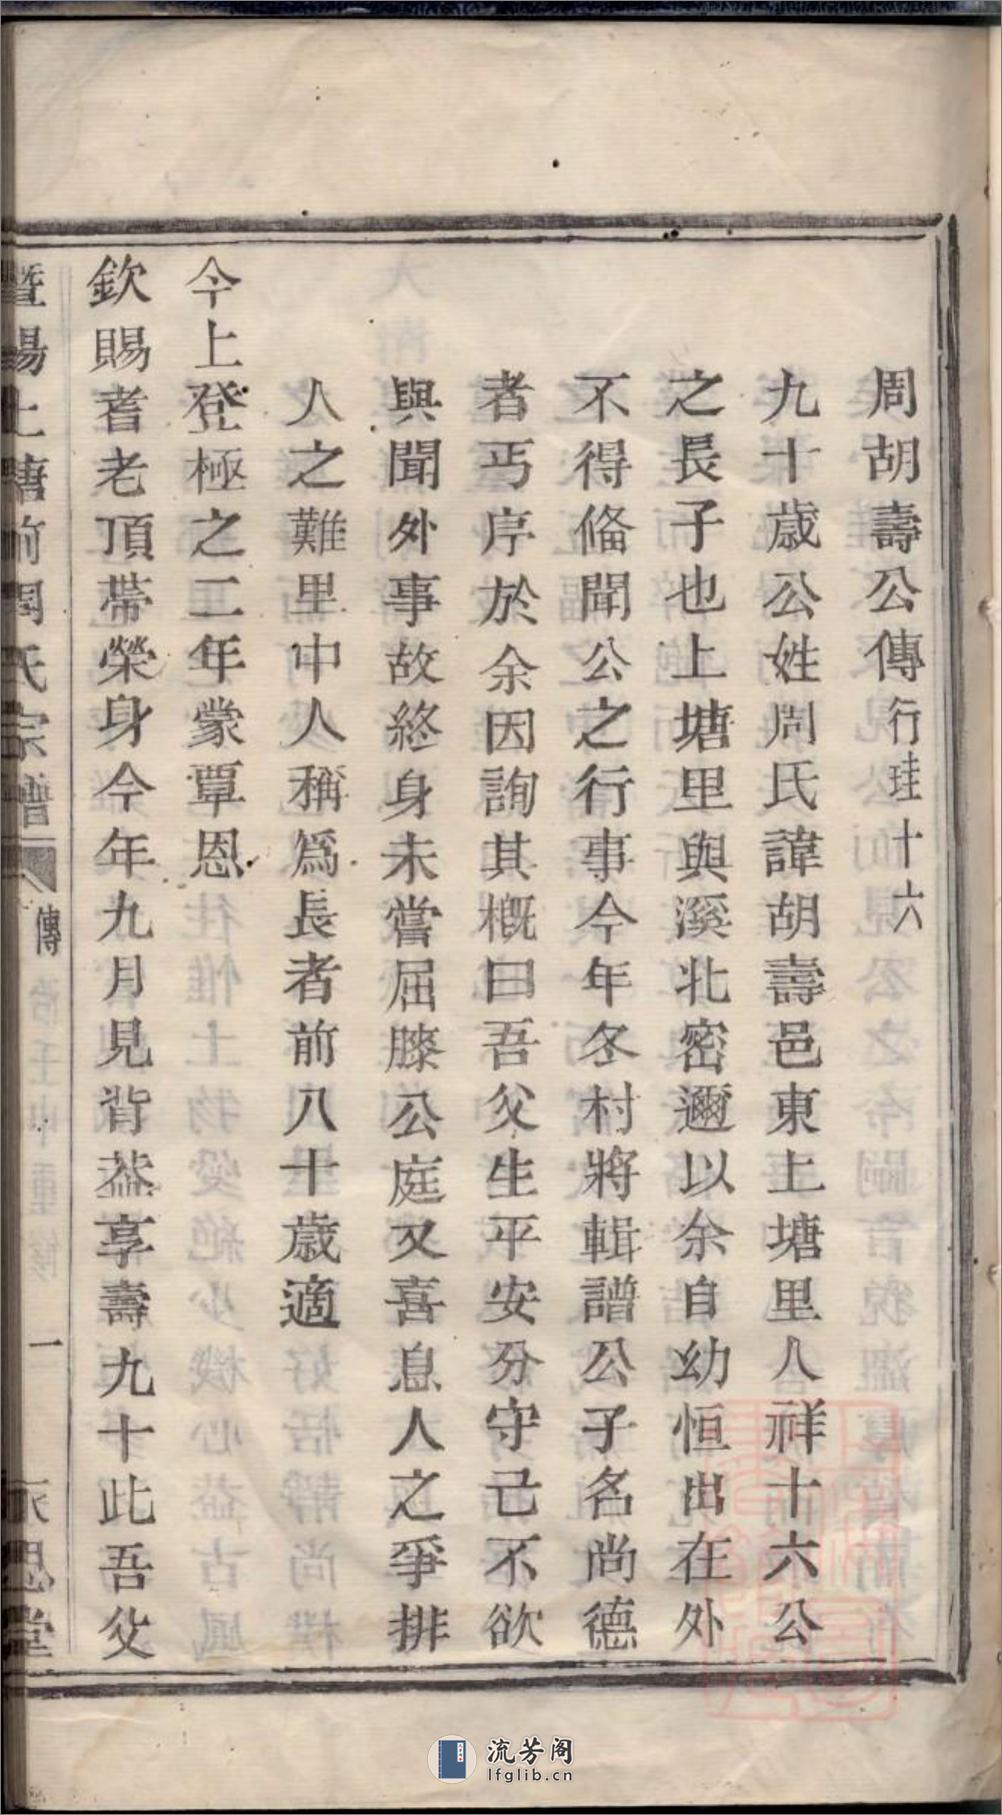 周胡壽公傳行珪十六
九十歲公姓周氏諱胡壽邑東上塘里人祥十六公
之長子也上塘里與溪北密邇以余自幼恒出在外
不得偹聞公之行事今年冬村將輯譜公子名尚德
者丐序於余因詢其槪曰吾父生平安分守己不欲
與聞外事故終身未嘗屈膝公庭又喜息人之爭排
人之難里中人稱爲長者前八十歲適
今上登極之二年蒙覃恩
欽賜耆老頂帶榮身今年九月見背葢享壽九十此吾父
暨陽上塘前周氏宗譜
傳
一
永思堂
流芳阁
lfglib.cn